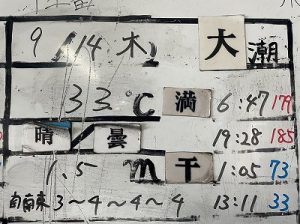 9/14 木 大潮
33℃ 満 6:47 179
晴/曇 19:28 185
1.5m 干 1:05 73
南南東 3~4~4~4 13:11 33